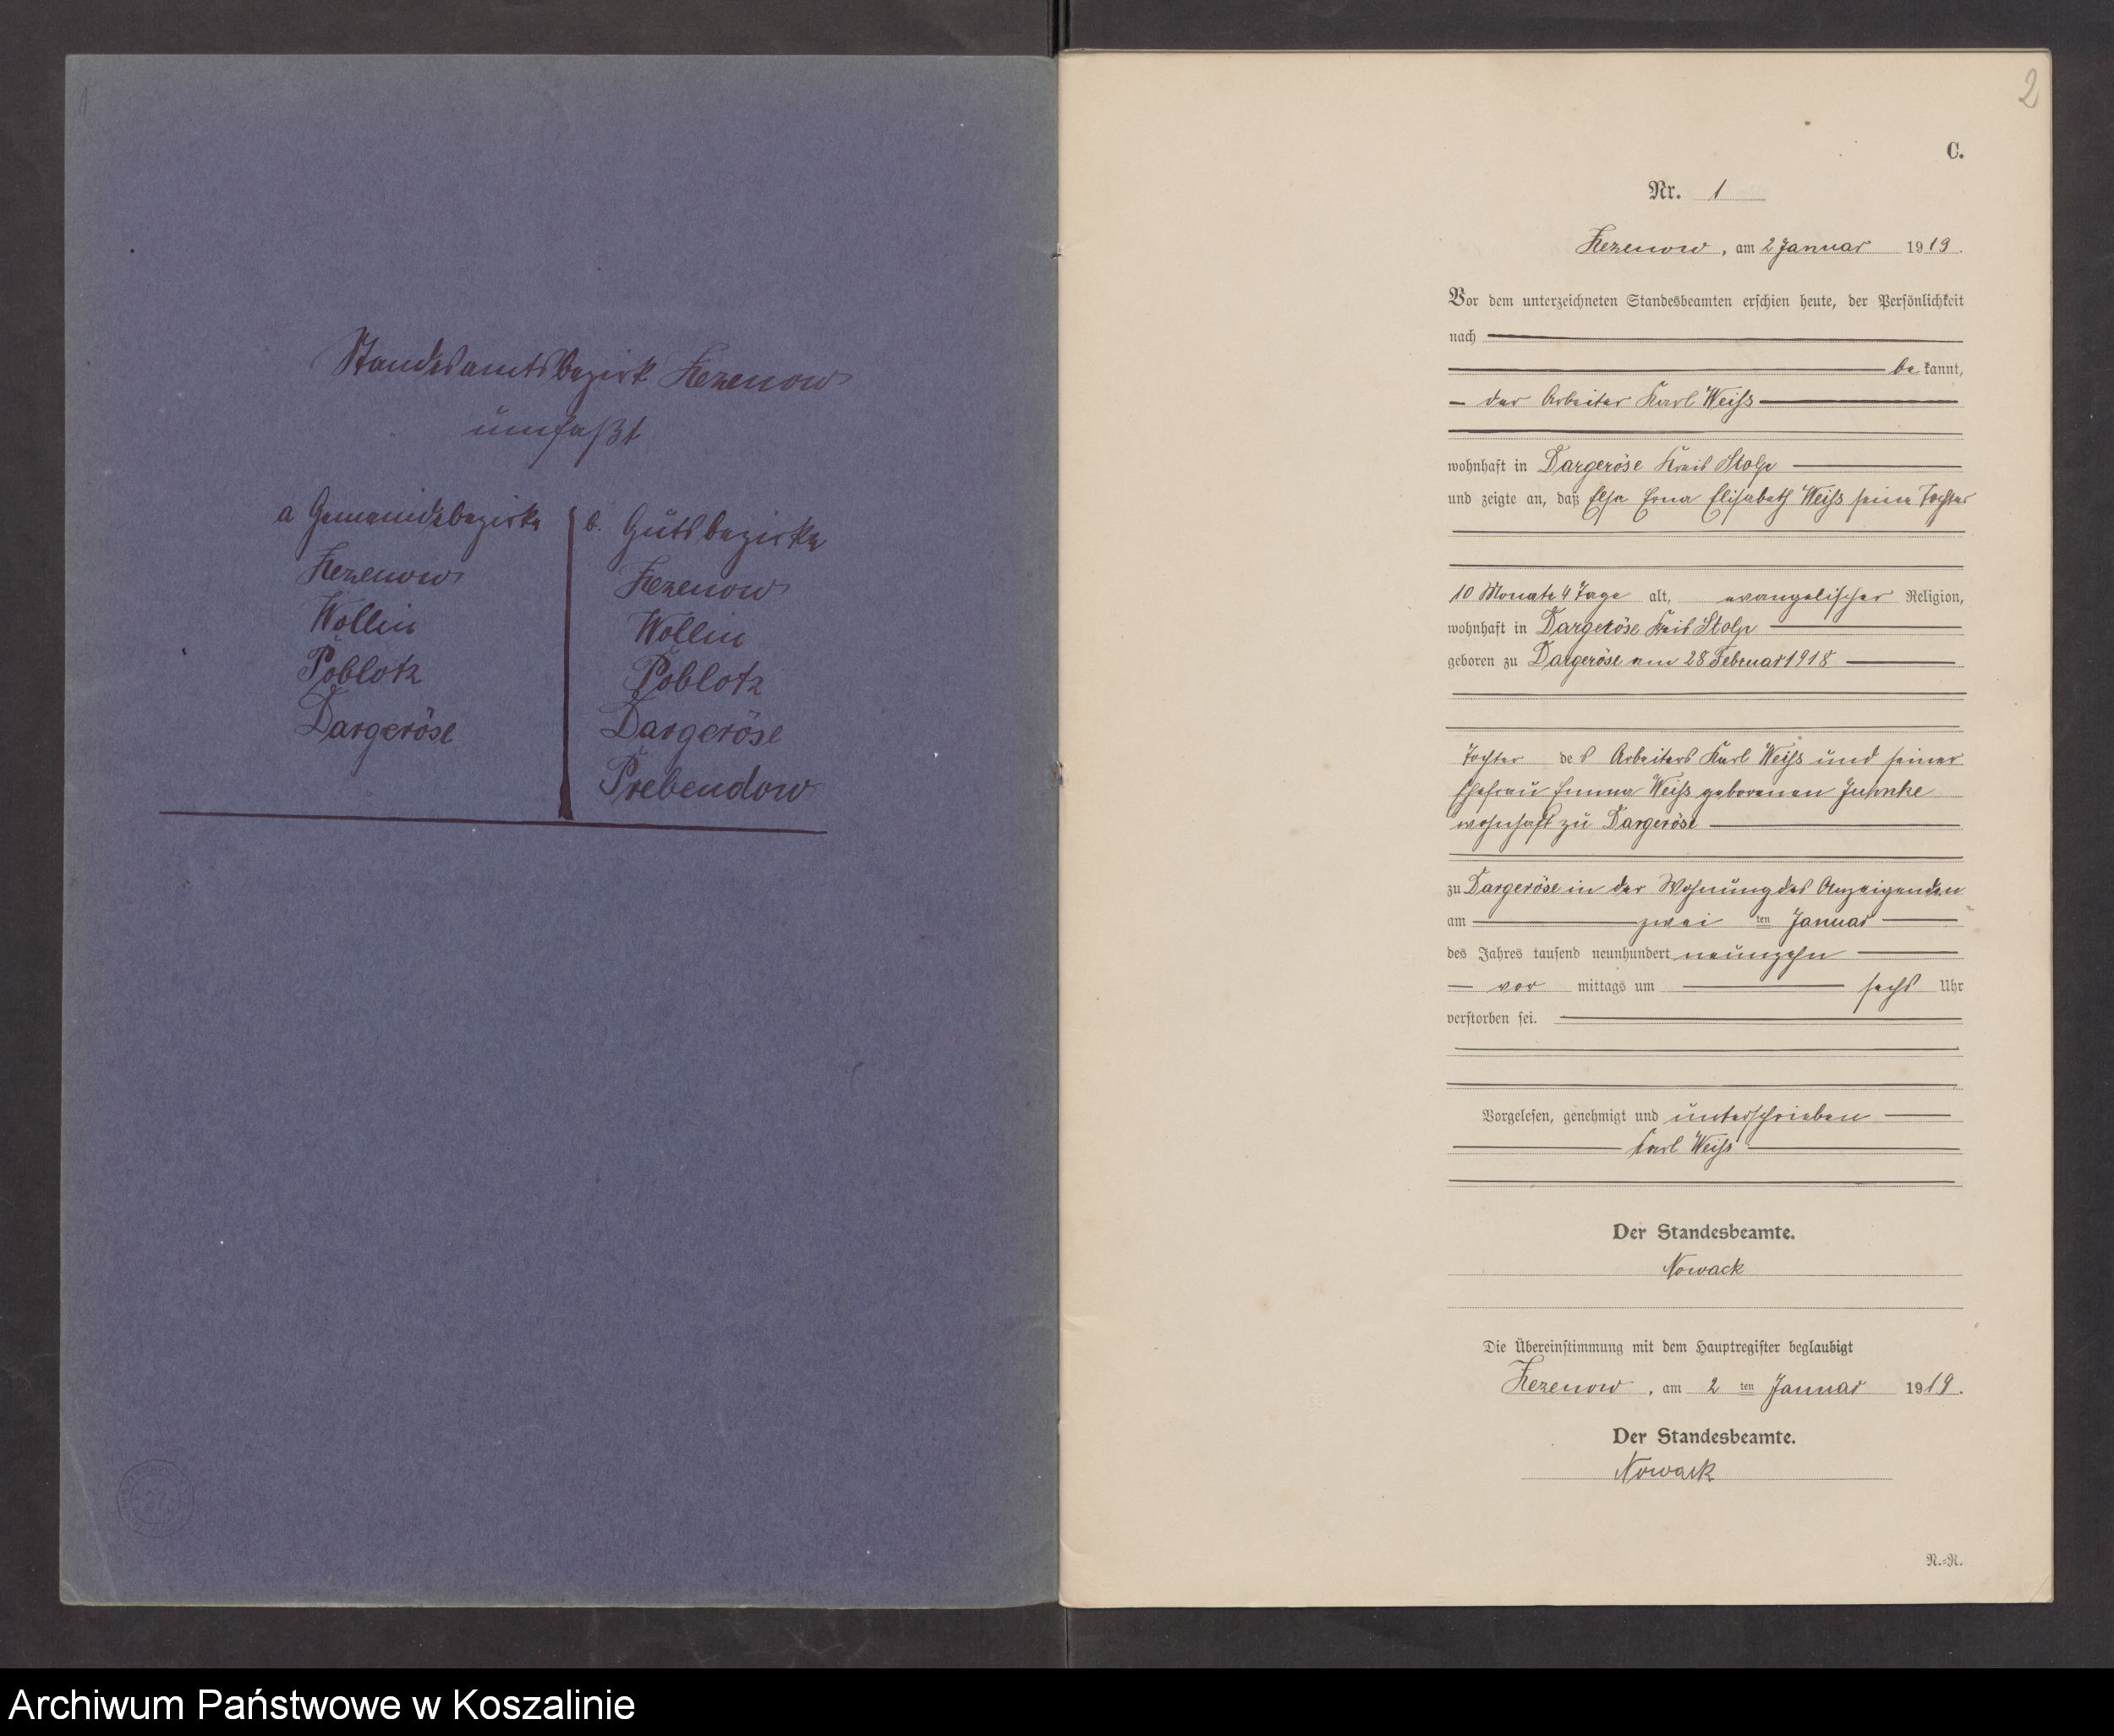 Standesamtsbezirk Zezenow
umfaßt
a Gemeindebezirke
Zezenow
Wollin
Poblotz
Dargeröse
b. Gutsbezirke
Zezenow
Wollin
Poblotz
Dargeröse
Prebendow
2
C.
Nr. 1
Zezenow, am 2 Januar 1919.
Vor dem unterzeichneten Standesbeamten erschien heute, der Persönlichkeit
nach
be kannt,
der Arbeiter Karl Weiß
wohnhaft in Dargeröse Kreis Stolp
und zeigte an, daß Elsa Erna Elisabeth Weiß seine Tochter
10 Monate 4 Tage alt, evangelischer Religion,
wohnhaft in Dargeröse Kreis Stolp
geboren zu Dargeröse am 28 Februar 1918
Tochter des Arbeiters Karl Weiß und seiner
Ehefrau Emma Weiß geborenen
wohnhaft zu Dargeröse
zu Dargeröse in der Wohnung des Anzeigenden
am zwei ten Januar
des Jahres tausend neunhundert neunzehn
vor mittags um sechs Uhr
verstorben sei.
Vorgelesen, genehmigt und unterschrieben
Karl Weiß
Der Standesbeamte.
Nowack
Die Übereinstimmung mit dem Hauptregister beglaubigt
Zezenow, am 2 ten Januar 1919.
Der Standesbeamte.
Nowack
N.-R.
Archiwum Państwowe w Koszalinie